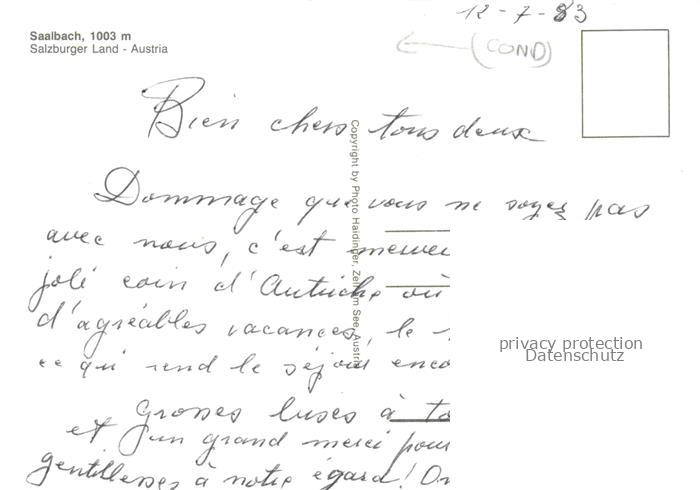 12-7-83
Saalbach, 1003 m
Salzburger Land - Austria
(COND)
Bien chers tous deux
Copyright by Photo Haidinger, Zell am See, Austria
Dommage que vous ne soyez pas
avec nous, c'est
joli coin d'Autriche où
d'agréables vacances, le
ce qui rend le séjour enco
Grosses bises à to
et un grand merci pour
gentillesses à notre égard! On
privacy protection
Datenschutz